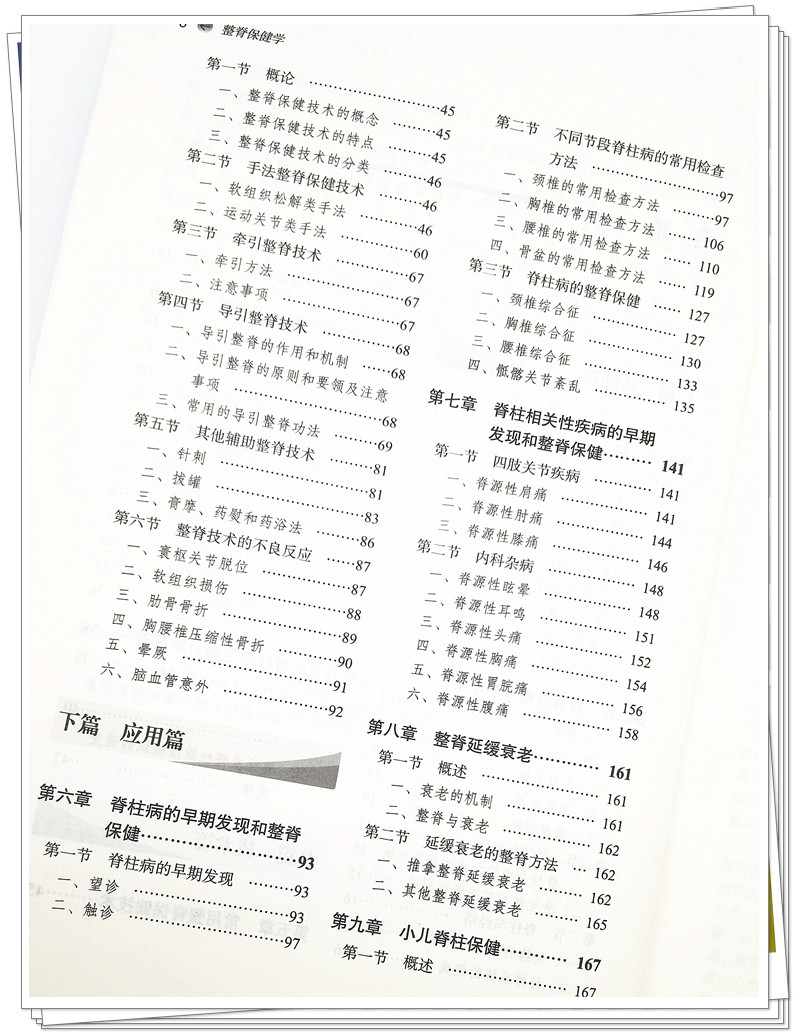 整脊保健学
第一节 概论 ……………………45
一、整脊保健技术的概念 ………45
二、整脊保健技术的特点 ………45
三、整脊保健技术的分类 ………46
第二节 手法整脊保健技术 ………46
一、软组织松解类手法 …………46
二、运动关节类手法 ……………60
第三节 牵引整脊技术 ……………67
一、牵引方法 ……………………67
二、注意事项 ……………………67
第四节 导引整脊技术 ……………68
一、导引整脊的作用和机制 ……68
二、导引整脊的原则和要领及注意
事项 ……………………………68
三、常用的导引整脊功法 ………69
第五节 其他辅助整脊技术 ………81
一、针刺 …………………………81
二、拔罐 …………………………83
三、膏摩、药熨和药浴法 ………86
第六节 整脊技术的不良反应 ……87
一、寰枢关节脱位 ………………87
二、软组织损伤 …………………88
三、肋骨骨折 ……………………89
四、胸腰椎压缩性骨折 …………90
五、晕厥 …………………………91
六、脑血管意外 …………………92
下篇 应用篇
第六章 脊柱病的早期发现和整脊
保健……………………93
第一节 脊柱病的早期发现 ………93
一、望诊 …………………………93
二、触诊 …………………………97
第二节 不同节段脊柱病的常用检查
方法 ……………………97
一、颈椎的常用检查方法 ………97
二、胸椎的常用检查方法 ……106
三、腰椎的常用检查方法 ……110
四、骨盆的常用检查方法 ……119
第三节 脊柱病的整脊保健 ……127
一、颈椎综合征 ………………127
二、胸椎综合征 ………………130
三、腰椎综合征 ………………133
四、骶髂关节紊乱 ……………135
第七章 脊柱相关性疾病的早期
发现和整脊保健……… 141
第一节 四肢关节疾病 …………141
一、脊源性肩痛 ………………141
二、脊源性肘痛 ………………144
三、脊源性膝痛 ………………146
第二节 内科杂病 ………………148
一、脊源性眩晕 ………………148
二、脊源性耳鸣 ………………151
三、脊源性头痛 ………………152
四、脊源性胸痛 ………………154
五、脊源性胃脘痛 ……………156
六、脊源性腹痛 ………………158
第八章 整脊延缓衰老………… 161
第一节 概述 ……………………161
一、衰老的机制 ………………161
二、整脊与衰老 ………………162
第二节 延缓衰老的整脊方法 …162
一、推拿整脊延缓衰老 ………162
二、其他整脊延缓衰老 ………165
第九章 小儿脊柱保健………… 167
第一节 概述 ……………………167